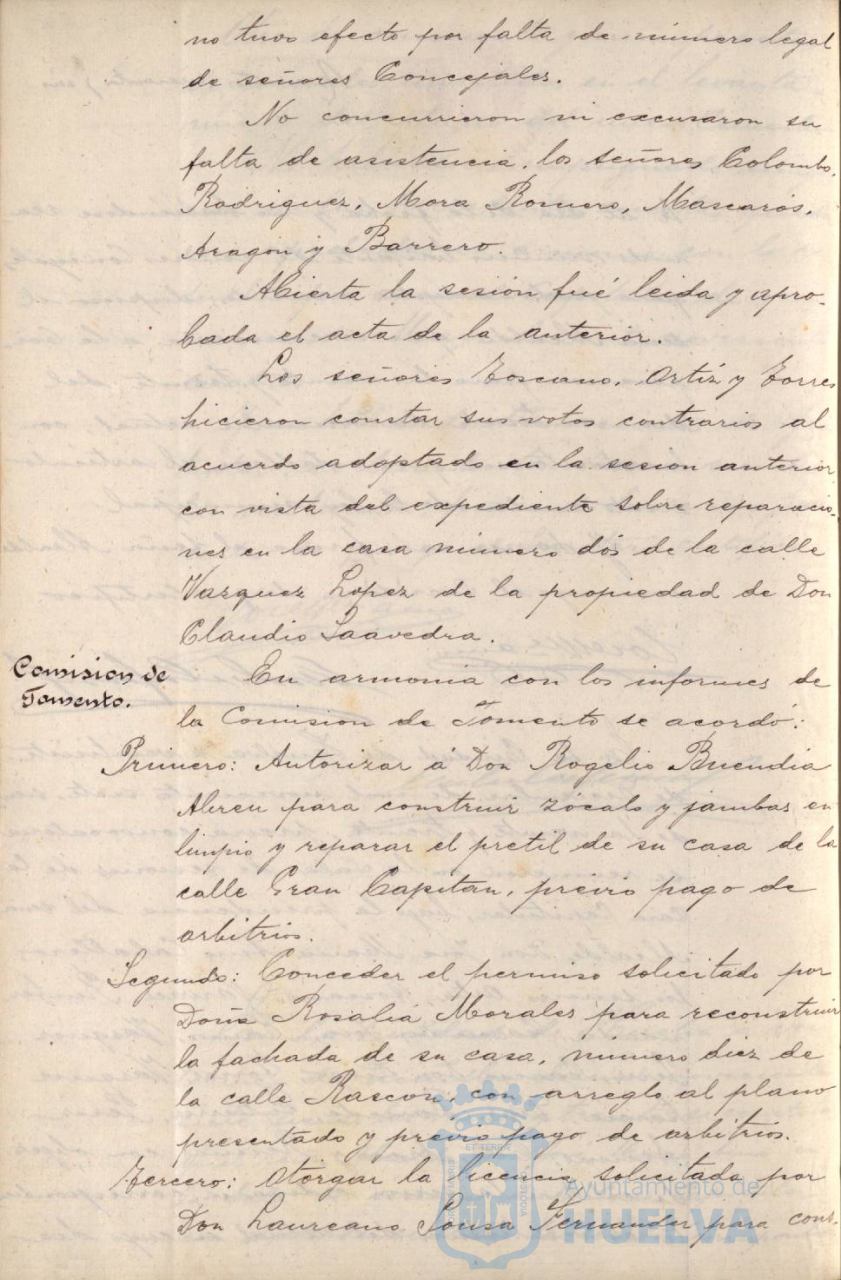 no tuvo efecto por falta de número legal
de señores Concejales.
No concurrieron ni excusaron su
falta de asistencia, los señores Colombo,
Rodriguez, Mora Romero, Mascarós,
Aragón y Barrero.
Abierta la sesión fué leida y apro-
bada el acta de la anterior.
Los señores Toscano, Ortíz y Torres
hicieron constar sus votos contrarios al
acuerdo adoptado en la sesion anterior
con vista del expediente sobre reparacio-
nes en la casa número dós de la calle
Vazquez Lopez de la propiedad de Don
Claudio Saavedra.
Comision de
Fomento.
En armonia con los informes de
la Comision de Fomento se acordó:
Primero: Autorizar á Don Rogelio Buendia
Abreu para construir zócalo y jambas en
limpio y reparar el pretil de su casa de la
calle Gran Capitan, prévio pago de
arbitrios.
Segundo: Conceder el permiso solicitado por
Doña Rosalia Morales para reconstruir
la fachada de su casa, número diez de
la calle Rascon, con arreglo al plano
presentado y prévio pago de arbitrios.
Tercero: Otorgar la licencia solicitada por
Don Laureano Sousa Fernandez para cons-
Ayuntamiento de
HUELVA